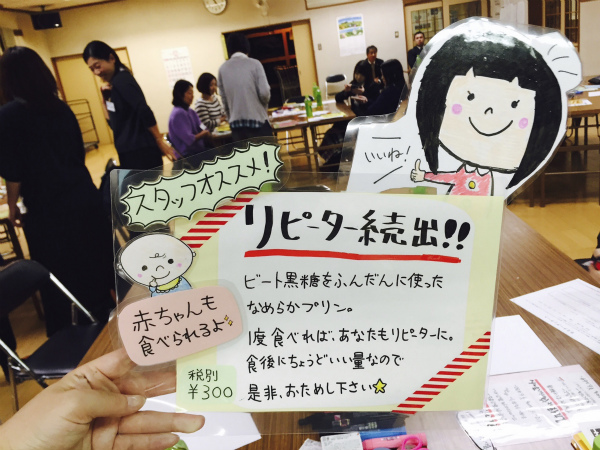 スタッフオススメ!
いいね!
リピーター続出!!
ビート黒糖をふんだんに使った
なめらかプリン。
1度食べれば、あなたもリピーターに。
食後にちょうどいい量なので
是非、おためし下さい☆
赤ちゃんも
食べられるよ
税別
¥300